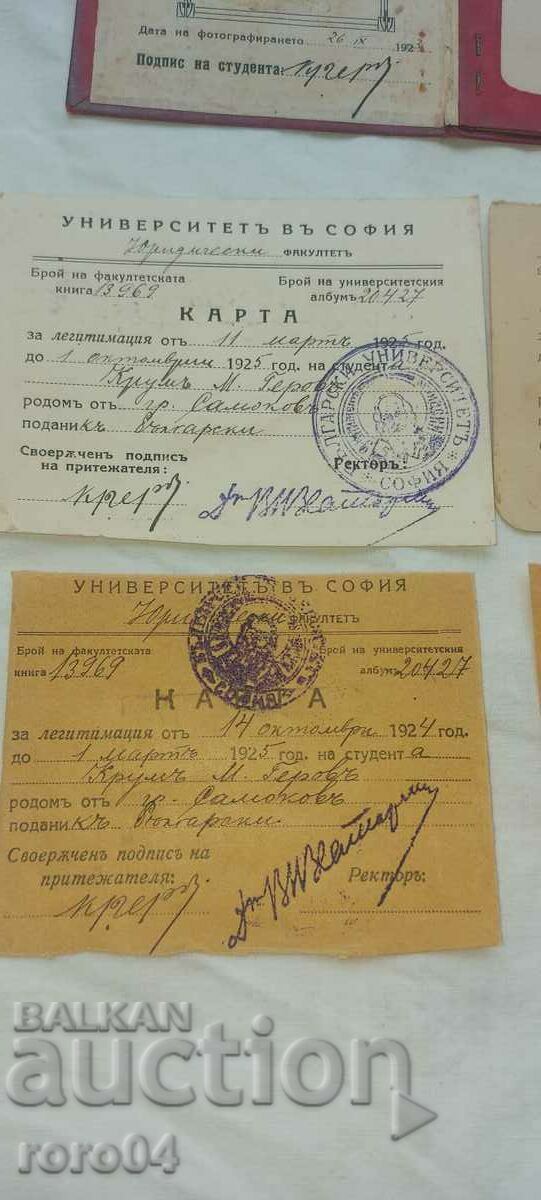 Дата на фотографирането 26 IX 192
Подпис на студента:
УНИВЕРСИТЕТЪ ВЪ СОФИЯ
Юридически ФАКУЛТЕТЪ
Брой на факултетската
книга 13969
Брой на университетския
албумъ 20427
КАРТА
за легитимация отъ 11 мартъ 1925 год.
до 1 октомврий 1925 год. на студента
Крумъ М. Геровъ
родомъ отъ гр. Самоковъ
поданикъ Български
Своерѫченъ подпис
на притежателя:
Ректоръ:
БЪЛГАРСКИ УНИВЕРСИТЕТЪ
СОФИЯ
УНИВЕРСИТЕТЪ ВЪ СОФИЯ
Юридически ФАКУЛТЕТЪ
Брой на факултетската
книга 13969
Брой на университетския
албумъ 20427
КАРТА
за легитимация отъ 14 октомври 1924 год.
до 1 мартъ 1925 год. на студента
Крумъ М. Геровъ
родомъ отъ гр. Самоковъ
поданикъ Български
Своерѫченъ подпис на
притежателя:
Ректоръ:
BALKAN
auction
roro04